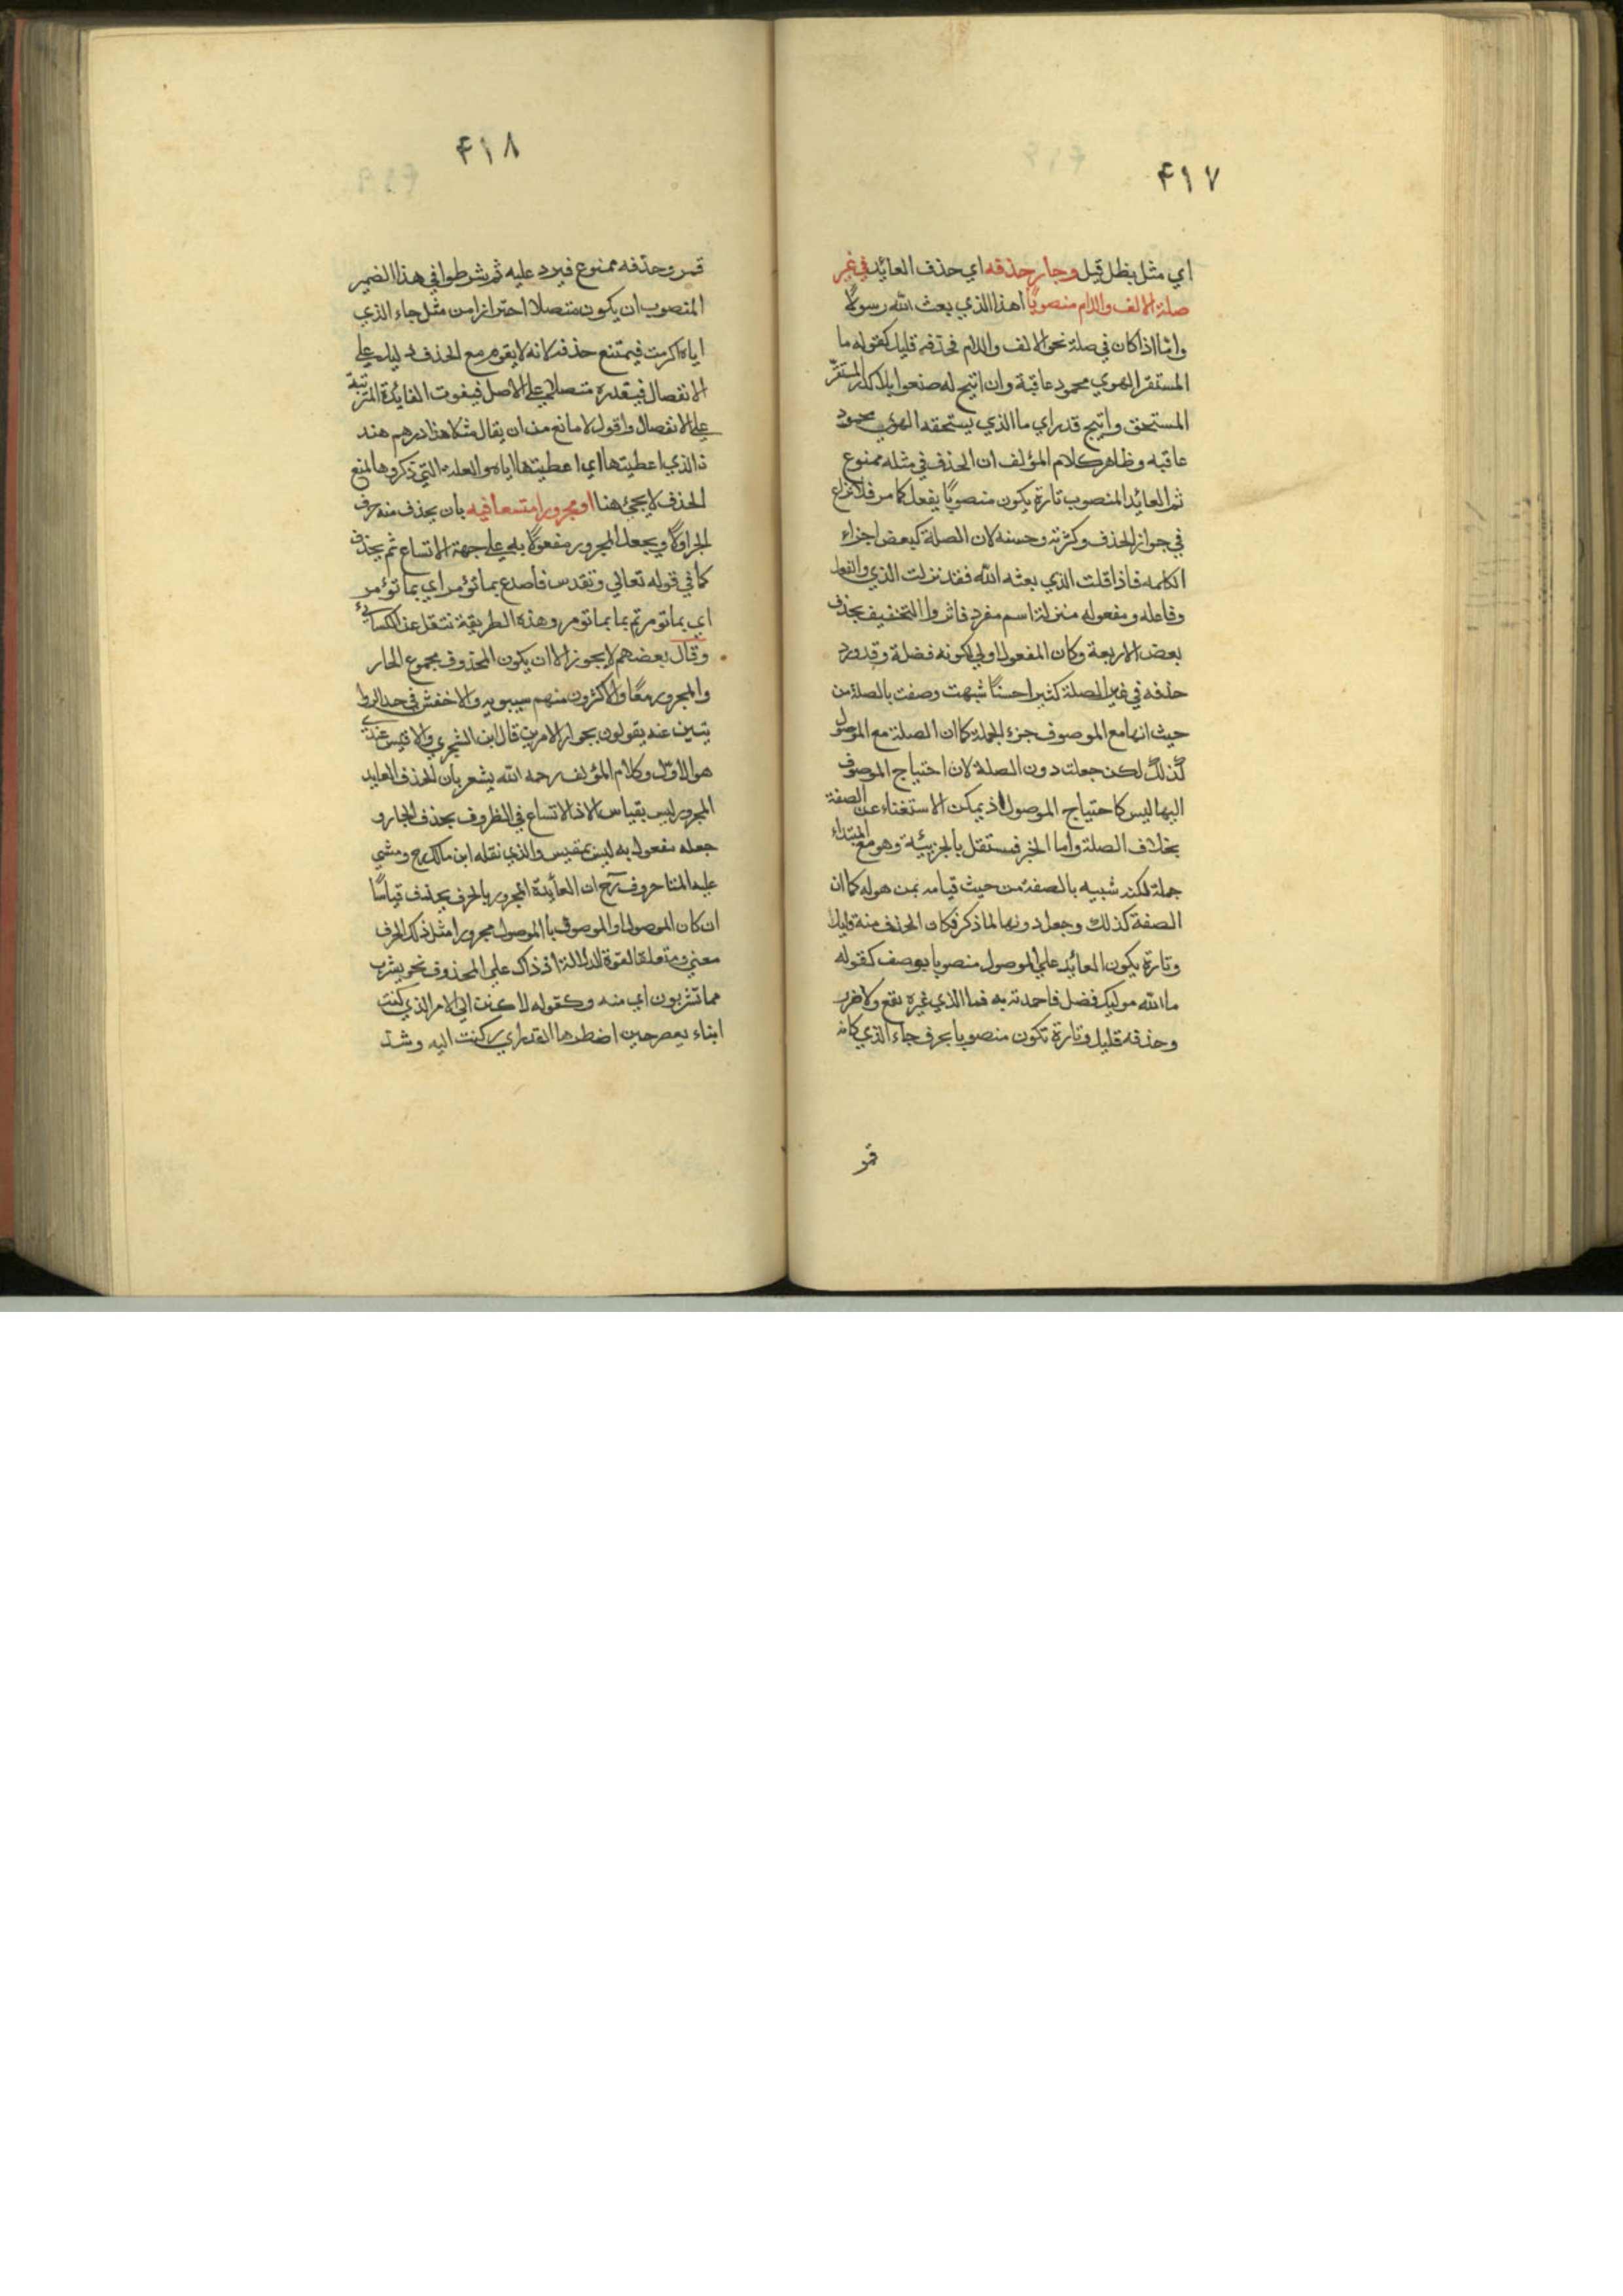 ٤١٧
اي مثل بظل قيل وجاز حذفه اي حذف العائد في غير
صلة الالف واللام منصوبًا اهذا الذي بعث الله رسولًا
واما اذا كان في صلة نحو الالف واللام فحذفه قليل كقوله ما
المستفز الهوي محمود عاقبة وان اتيح له صفو بلا كدر المستفز
المستحق واتيح قدر اي ما الذي يستحقه الهوي محمود
عاقبه وظاهر كلام المؤلف ان الحذف في مثله ممنوع
ثم العايد المنصوب تارة يكون منصوبًا بفعل كما مر فلا نزاع
في جواز الحذف وكثرته وحسنه لان الصلة كبعض اجزاء
الكلمه فاذا قلت الذي بعثه الله فقد نزلت الذي والفعل
وفاعله ومفعوله منزلة اسم مفرد فاثروا التخفيف بحذف
بعض الاربعة وكان المفعول اولي لكونه فضلة وقد ورد
حذفه في غير الصلة كثيرا حسنًا شبهت وصفت بالصلة من
حيث انها مع الموصوف جزء الجملة كما ان الصلة مع الموصول
كذلك لكن جعلت دون الصلة لان احتياج الموصوف
اليها ليس كاحتياج الموصول اذ يمكن الاستغناء عن الصفة
بخلاف الصلة واما الخبر فمستقل بالجزيئة وهو مع المبتداء
جملة لكنه شبيه بالصفة من حيث قيامه بمن هو له كما ان
الصفة كذلك وجعل دونها لما ذكر فكان الحذف منه قليلا
وتارة يكون العائد علي الموصول منصوبا بوصف كقوله
ما الله موليك فضل فاحمدنه به فما الذي غيره نفع ولا ضرر
وحذفه قليل وتارة تكون منصوبا بحرف جاء الذي كانه
قمر
٤١٨
قمر وحذفه ممنوع فيرد عليه ثم شرطوا في هذا الضمير
المنصوب ان يكون متصلا احترازا من مثل جاء الذي
اياه اكرمت فيمتنع حذفه لانه لا يقوم مع الحذف دليل علي
الانفصال فيقدره متصلا علي الاصل فيفوت الفايدة المترتبة
علي الانفصال واقول لا مانع من ان يقال مثلا هذا درهم هند
ذا الذي اعطيتها اي اعطيتها اياه والعلة التي ذكروها لمنع
الحذف لا يجئ هنا او مجرورا متسعا فيه بان يحذف منه حرف
الجر اولًا ويجعل المجرور مفعولًا به علي جهة الاتساع ثم يحذف
كما في قوله تعالي وتقدس فاصدع بما تؤمر اي بما تؤمر
اي بما تومر ثم بما تومر وهذه الطريقة تنقل عن الكسائي
وقال بعضهم لا يجوز الا ان يكون المحذوف مجموع الجار
والمجرور معًا والاكثرون منهم سيبويه والاخفش في
عنه يقولون بجواز الامرين قال ابن الشجري والاقيس عندي
هو الاول وكلام المؤلف رحمه الله يشعر بان الحذف العايد
المجرور ليس بقياس الا اذا الاتساع في الظروف بحذف الجار و
جعله مفعول به ليس بمقيس والذي نقله ابن مالك رح ومشي
عليه ان العايدة المجرور بالحرف يحذف قياسًا
ان كان الموصول او الموصوف با الموصول مجرورا مثل ذلك الحرف
معني ومتعلقا لقوة الدلالة اذ ذاك علي المحذوف نحو يشرب
مما تشربون اي منه وكقوله لا تركنن الي الامر الذي ركنت
ابناء يعصر حين اضطرها القدر اي ركنت اليه وشذ